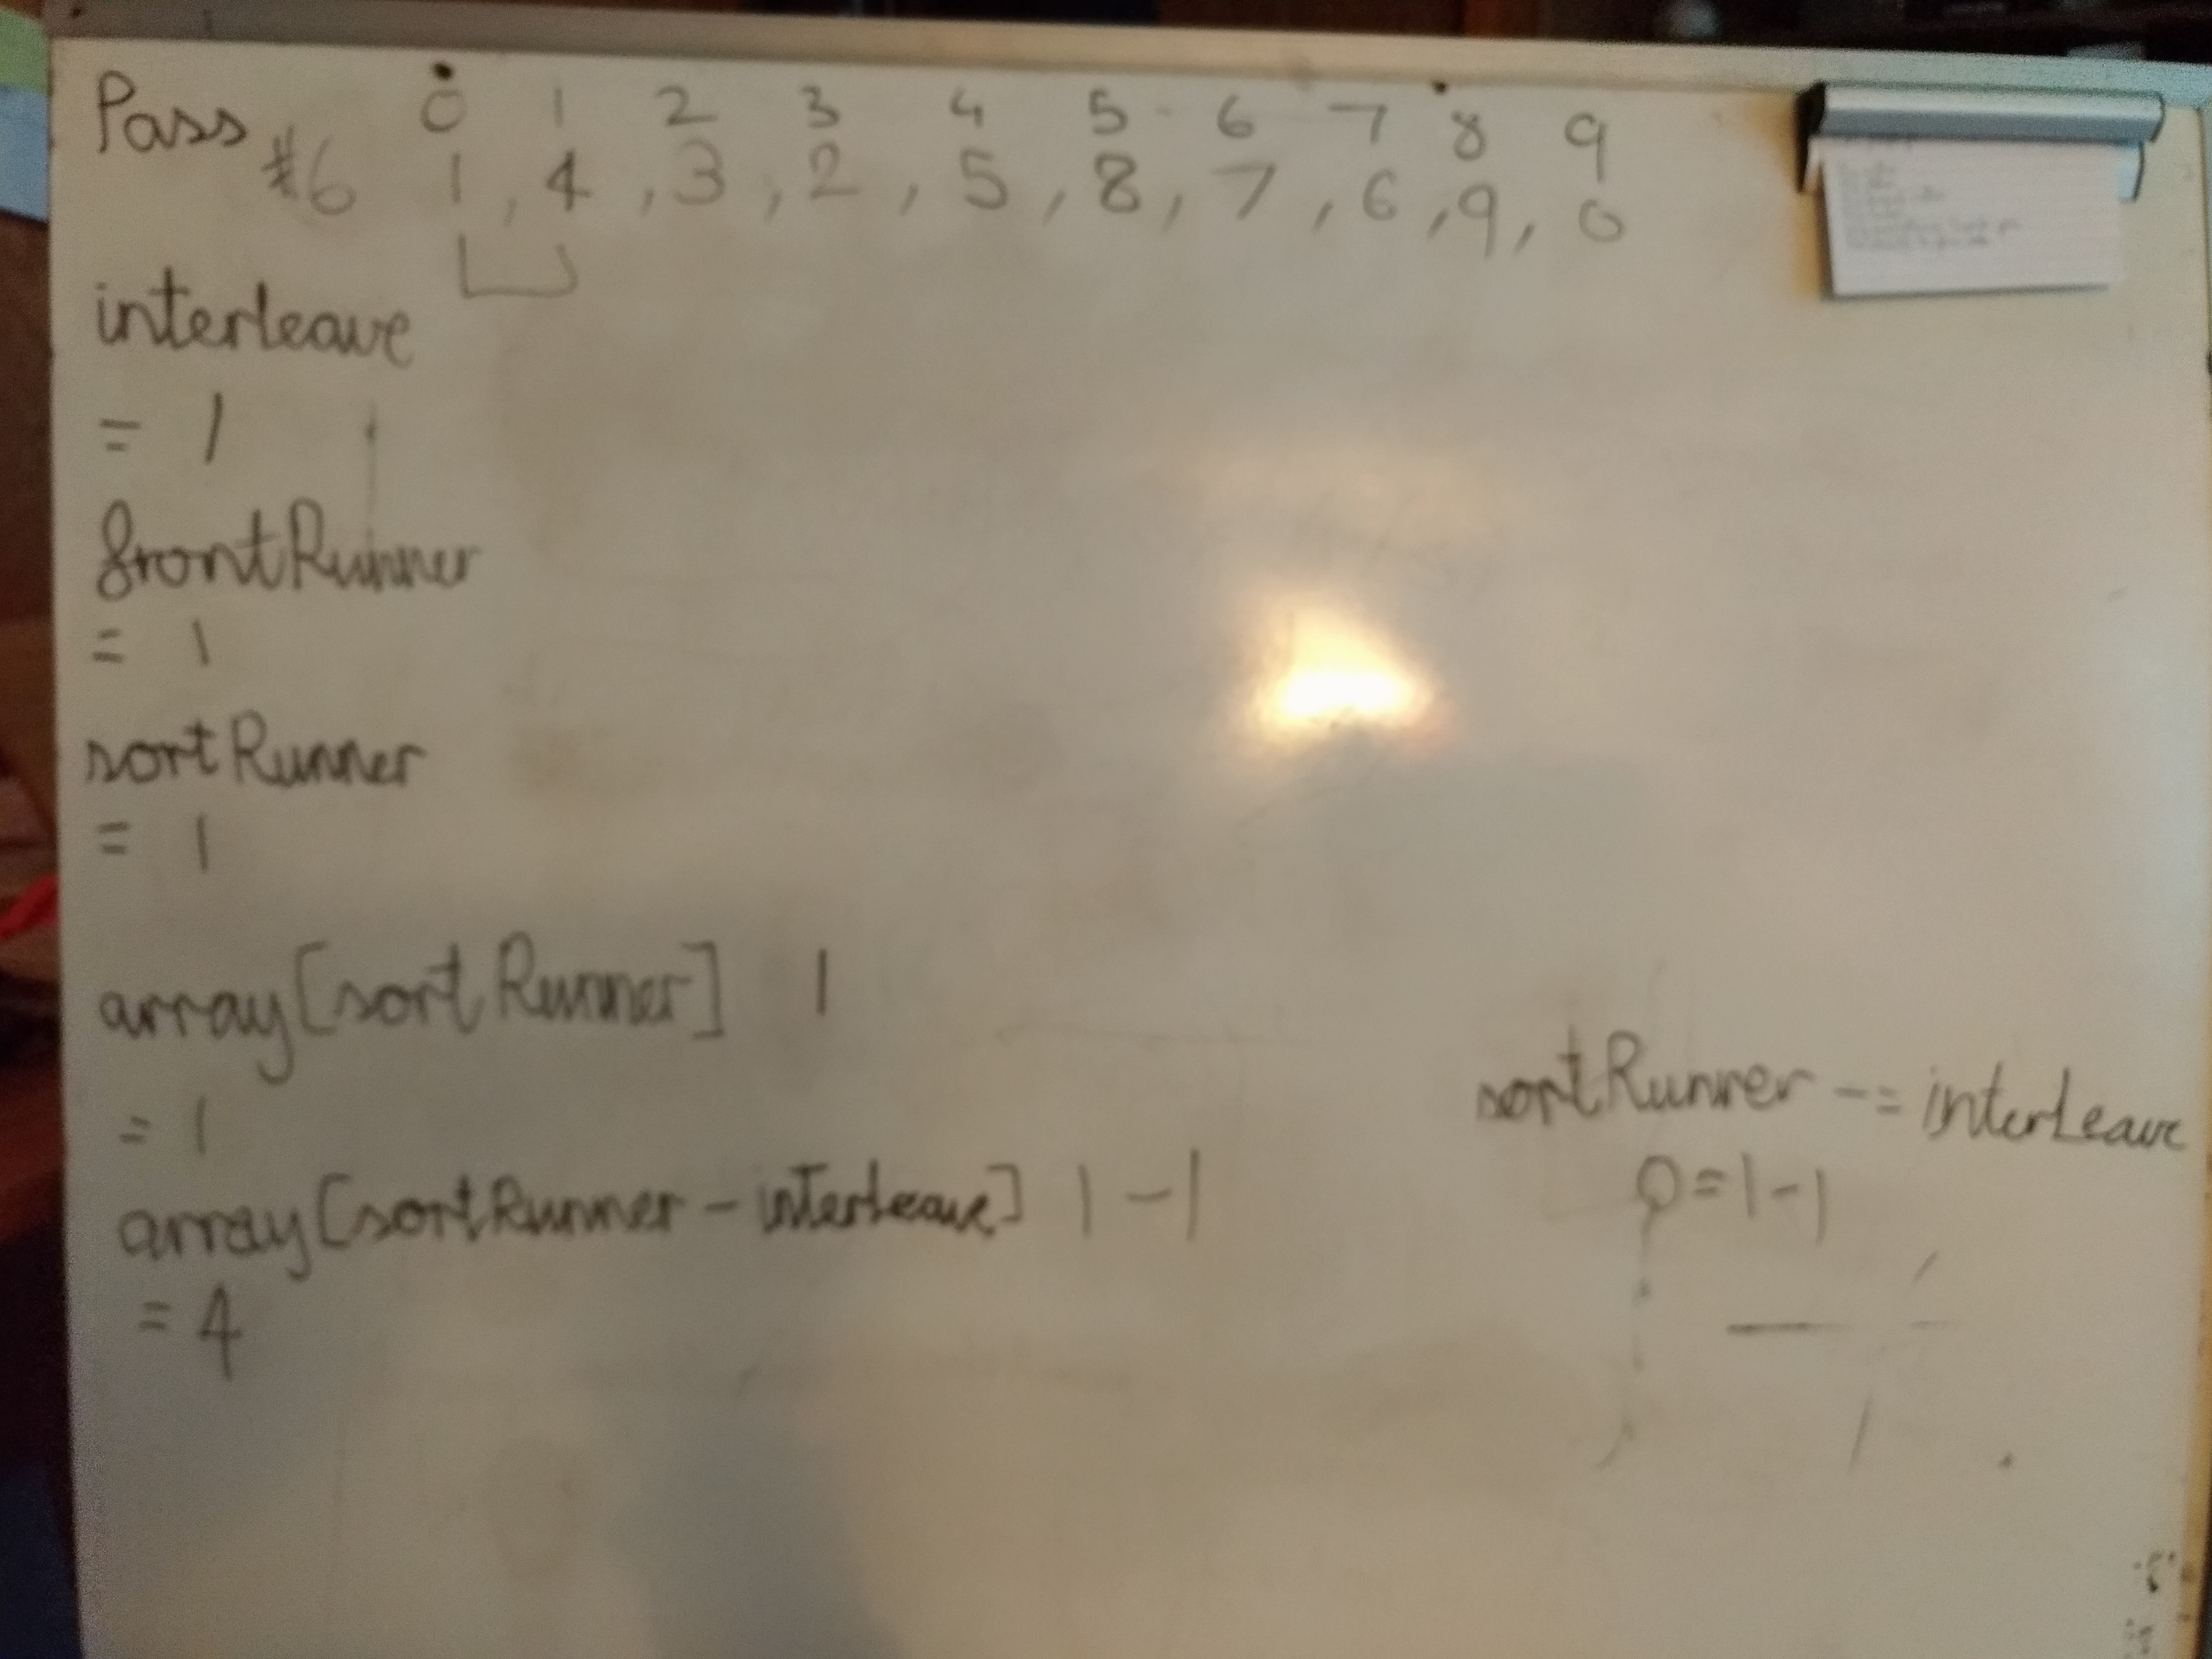 Pass 0 1 2 3 4 5 6 7 8 9
#6 1 , 4 , 3 , 2 , 5 , 8 , 7 , 6 , 9 , 0
interleave
= 1
frontRunner
= 1
sortRunner
= 1
array[sortRunner] 1
= 1
array[sortRunner - interLeave] 1 - 1
= 4
sortRunner -= interLeave
0 = 1 - 1